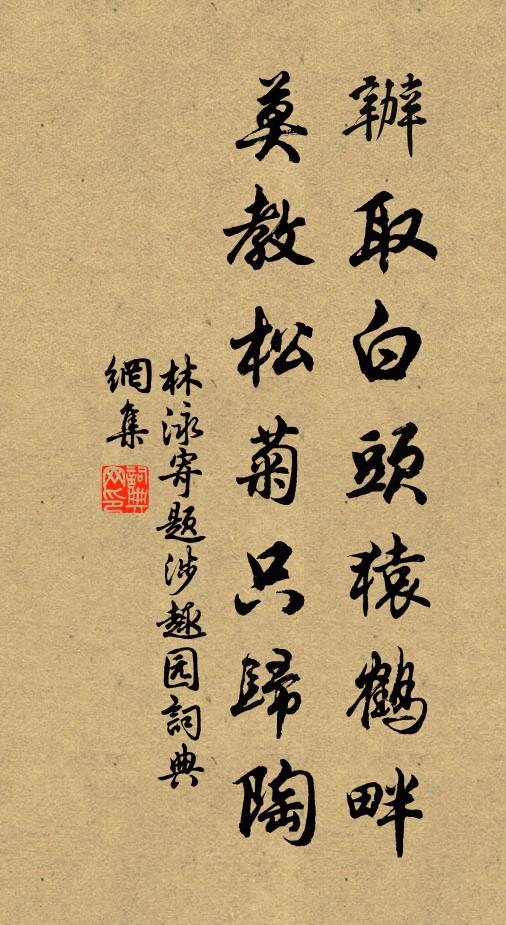 辦取白頭猿鶴畔
莫教松菊只歸陶
林泳寄題涉趣园詞典
網集
詞典网印